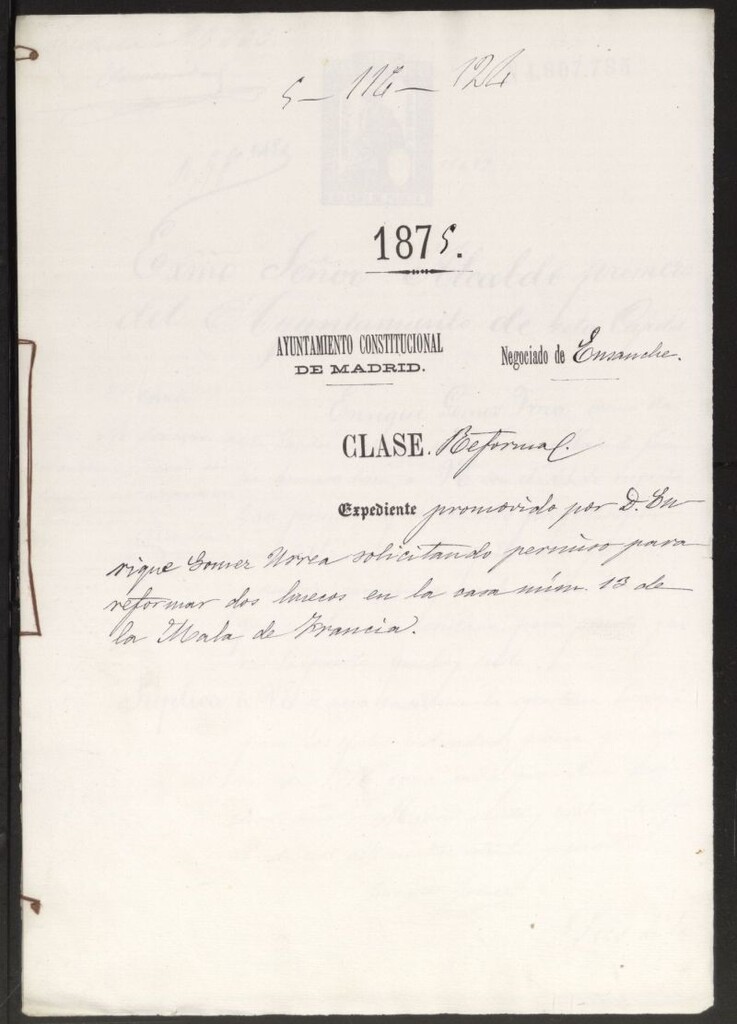 5-116-124
1875.
AYUNTAMIENTO CONSTITUCIONAL
DE MADRID.
Negociado de Ensanche.
CLASE. Reformas.
Expediente promovido por D. En
rique Gomez Urrea solicitando permiso para
reformar dos huecos en la casa núm. 13 de
la Mala de Francia.